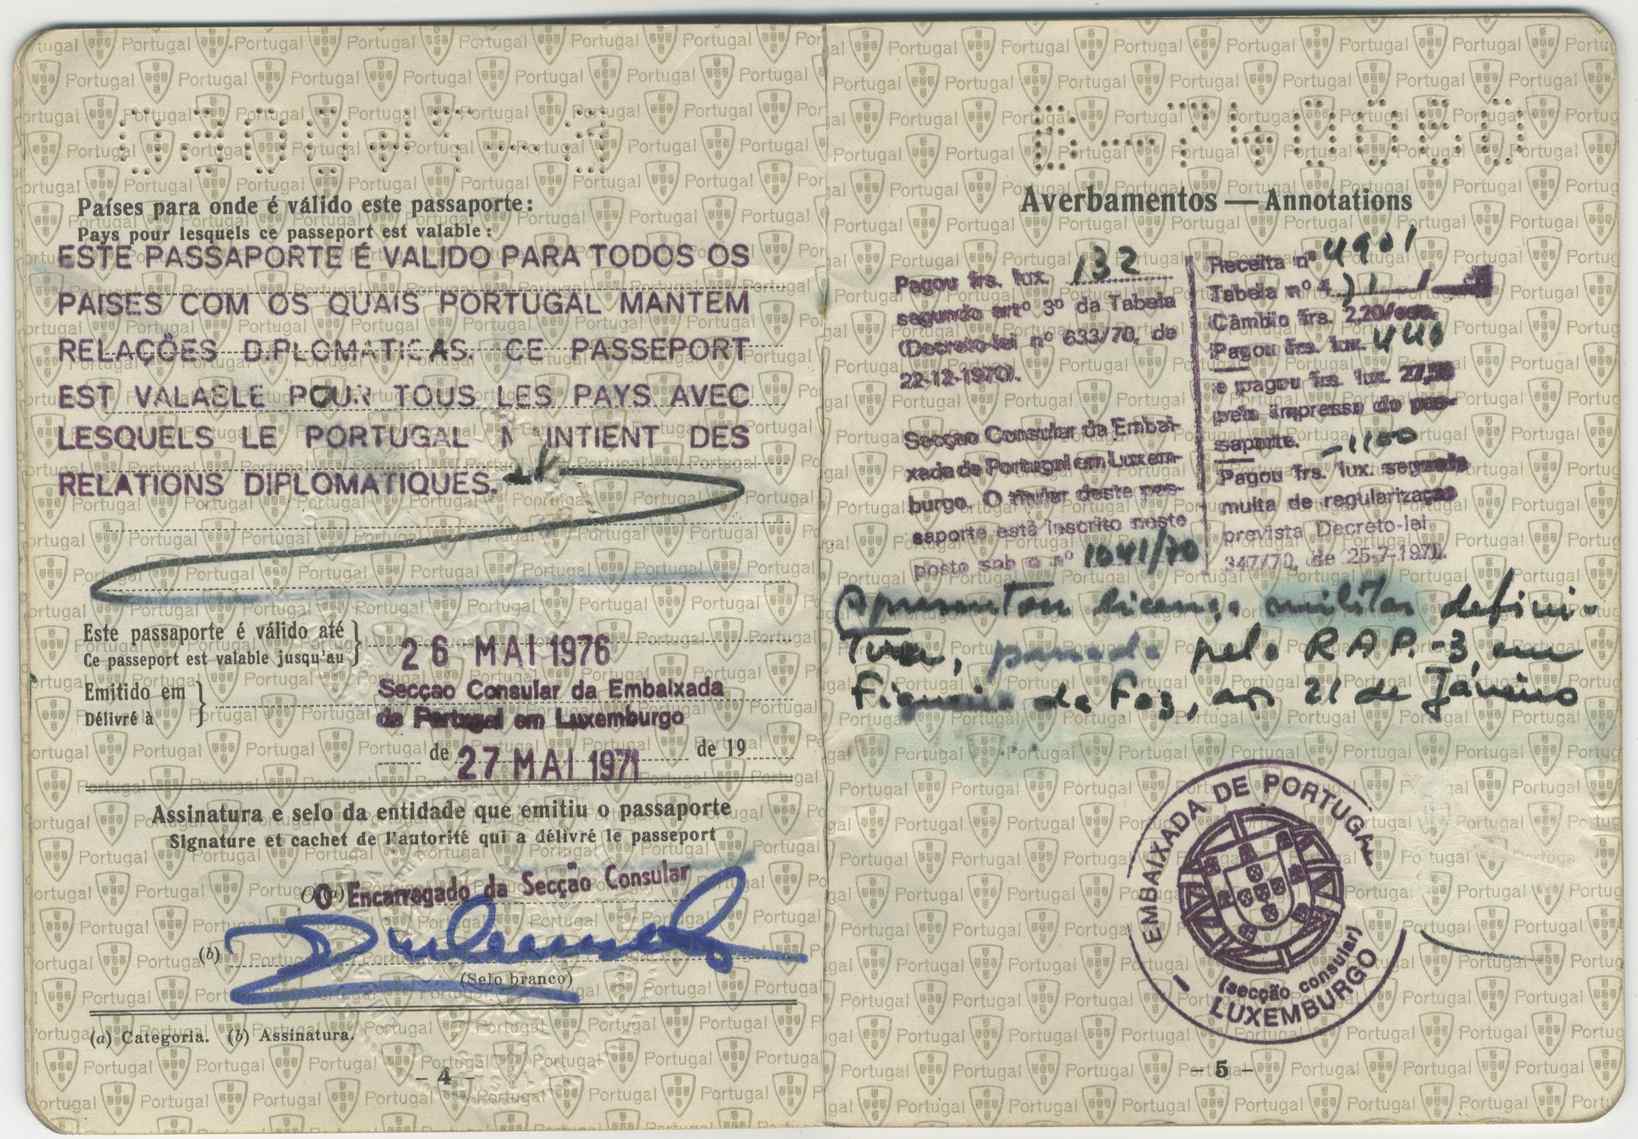 Países para onde é válido este passaporte:
Pays pour lesquels ce passeport est valable:
ESTE PASSAPORTE É VALIDO PARA TODOS OS
PAISES COM OS QUAIS PORTUGAL MANTEM
RELAÇÕES DIPLOMATICAS. CE PASSEPORT
EST VALABLE POUR TOUS LES PAYS AVEC
LESQUELS LE PORTUGAL MAINTIENT DES
RELATIONS DIPLOMATIQUES.
Este passaporte é válido até
Ce passeport est valable jusqu'au
26 MAI 1976
Emitido em
Délivré à
Secção Consular da Embaixada
de Portugal em Luxemburgo
de 27 MAI 1971 de 19
Assinatura e selo da entidade que emitiu o passaporte
Signature et cachet de l'autorité qui a délivré le passeport
O Encarregado da Secção Consular
(b)
(Selo branco)
(a) Categoria. (b) Assinatura.
- 4 -
Averbamentos — Annotations
Pagou frs. lux. 132
segundo artº 3º da Tabela
(Decreto-lei nº 633/70, de
22-12-1970).
Secçao Consular da Embai-
xada de Portugal em Luxem-
burgo. O titular deste pas-
saporte está inscrito neste
posto sob o nº 1041/70
Receita nº 4901
Tabela nº 4
Câmbio frs. 2,20/esc.
Pagou frs. lux. 440
e pagou frs. lux. 27,50
pelo impresso do pas-
saporte. -1100
Pagou frs. lux. segundo
multa de regularização
prevista Decreto-lei
347/70, de 25-7-1970.
Apresentou licença militar defini-
tiva, passada pelo R.A.P.-3, em
Figueira da Foz, aos 21 de Janeiro
EMBAIXADA DE PORTUGAL
(secção consular)
- LUXEMBURGO
- 5 -